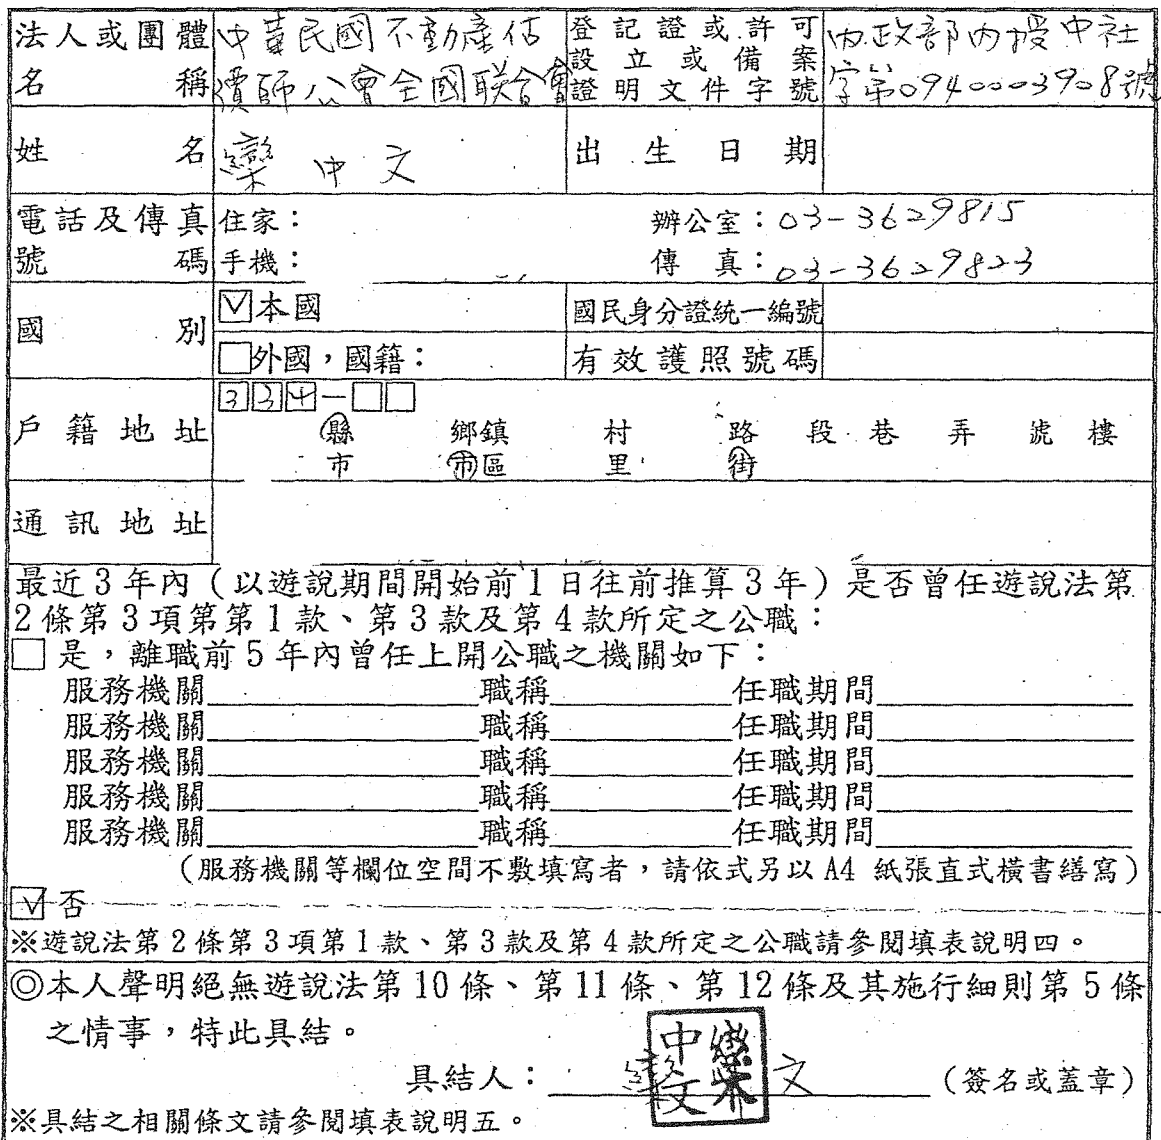 法人或團體 中華民國不動產估 登記證或許可 內政部內授中社
名稱 價師公會全國联合會 設立或備案 字第0940003908號
證明文件字號
姓名 欒中文 出生日期
電話及傳真 住家： 辦公室：03-3629815
號碼 手機： 傳真：03-3629823
國別 ☑本國 國民身分證統一編號
□外國，國籍： 有效護照號碼
334-□□
戶籍地址 縣 鄉鎮 村 路 段 巷 弄 號 樓
市 市區 里 街
通訊地址
最近3年內（以遊說期間開始前1日往前推算3年）是否曾任遊說法第
2條第3項第第1款、第3款及第4款所定之公職：
□是，離職前5年內曾任上開公職之機關如下：
服務機關 職稱 任職期間
服務機關 職稱 任職期間
服務機關 職稱 任職期間
服務機關 職稱 任職期間
服務機關 職稱 任職期間
（服務機關等欄位空間不敷填寫者，請依式另以A4 紙張直式橫書繕寫）
☑否
※遊說法第2條第3項第1款、第3款及第4款所定之公職請參閱填表說明四。
◎本人聲明絕無遊說法第10條、第11條、第12條及其施行細則第5條
之情事，特此具結。
具結人：欒中文 （簽名或蓋章）
欒中文
※具結之相關條文請參閱填表說明五。